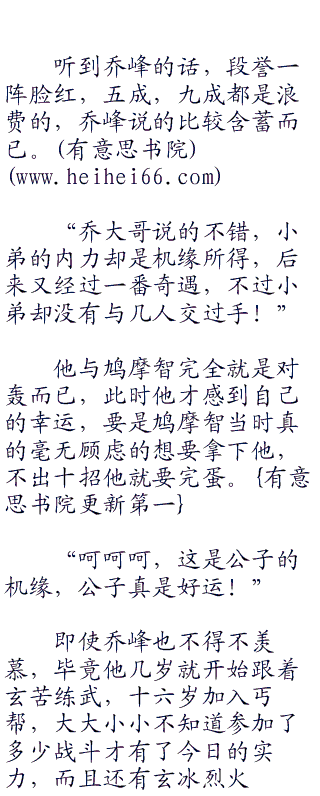 听到乔峰的话，段誉一
阵脸红，五成，九成都是浪
费的，乔峰说的比较含蓄而
已。(有意思书院)
(www.heihei66.com)
“乔大哥说的不错，小
弟的内力却是机缘所得，后
来又经过一番奇遇，不过小
弟却没有与几人交过手！”
他与鸠摩智完全就是对
轰而已，此时他才感到自己
的幸运，要是鸠摩智当时真
的毫无顾虑的想要拿下他，
不出十招他就要完蛋。{有意
思书院更新第一}
“呵呵呵，这是公子的
机缘，公子真是好运！”
即使乔峰也不得不羡
慕，毕竟他几岁就开始跟着
玄苦练武，十六岁加入丐
帮，大大小小不知道参加了
多少战斗才有了今日的实
力，而且还有玄冰烈火